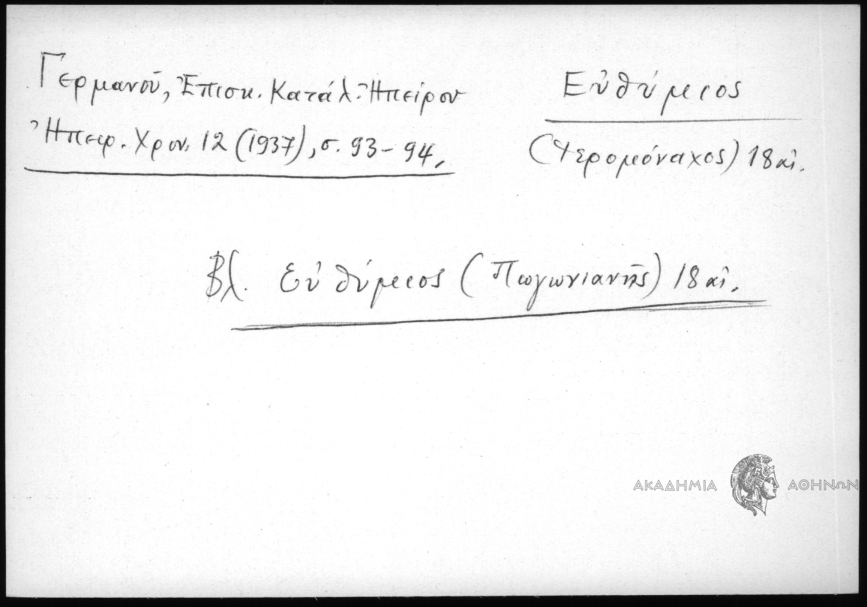 Γερμανοῦ, Ἐπισκ. Κατάλ. Ἠπείρου
Ἠπειρ. Χρον. 12 (1937), σ. 93-94.
Εὐθύμιος
(Ἱερομόναχος) 18 αἰ.
Βλ. Εὐθύμιος (Πωγωνιανῆς) 18 αἰ.
ΑΚΑΔΗΜΙΑ ΑΘΗΝΩΝ